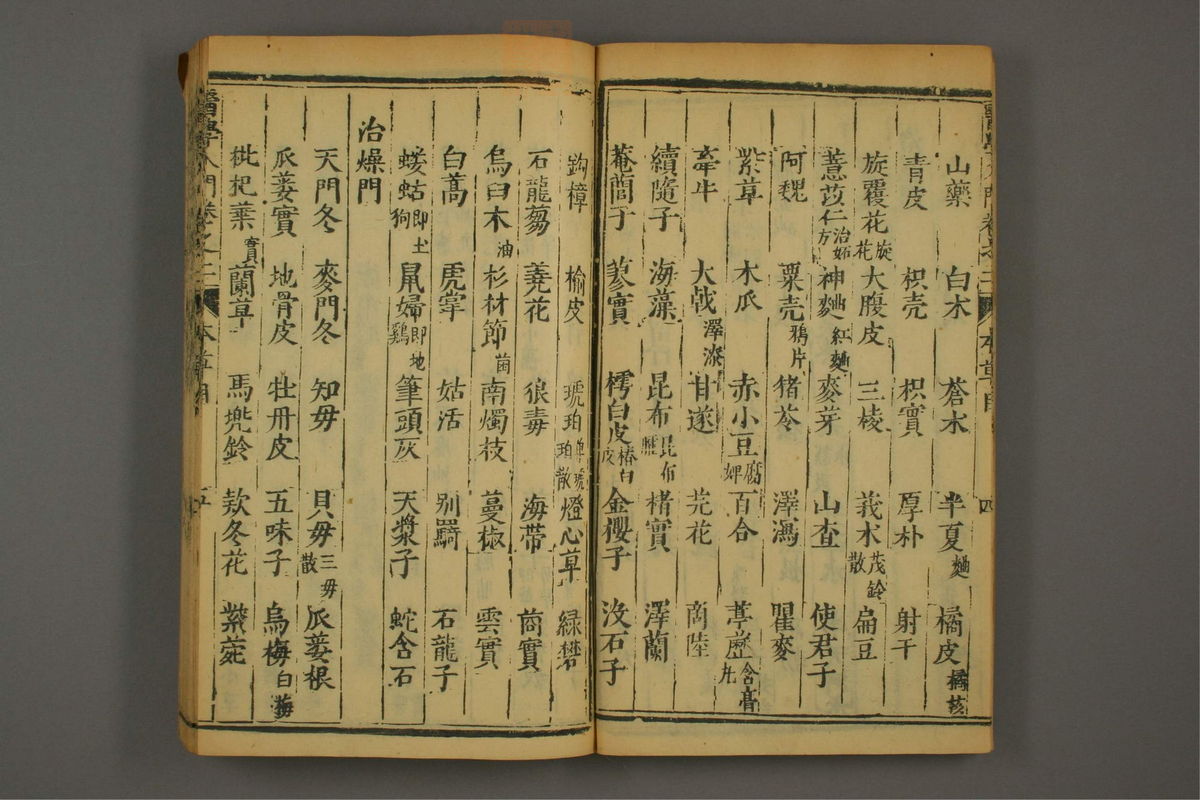 山藥 白朮 蒼朮 半夏麯 橘皮橘核
青皮 枳壳 枳實 厚朴 射干
旋覆花旋花 大腹皮 三棱 莪朮茂鈴散 扁豆
薏苡仁治妬方 神麯曲紅麯 麥芽 山査 使君子
阿魏 粟壳鴉片 猪苓 澤瀉 瞿麥
紫草 木瓜 赤小豆腐婢 百合 葶藶含膏丸
牽牛 大戟澤漆 甘遂 芫花 商陸
續隨子 海藻 昆布昆布臛 楮實 澤蘭
菴䕡子 蓼實 樗白皮椿白皮 金櫻子 沒石子
鈎樟 榆皮 琥珀琥珀散 燈心草 緑礬
石龍芻 蕘花 狼毒 海帶 茵實
烏臼木油 杉材節菌 南燭枝 蔓椒 雲實
白蒿 虎掌 姑活 别羇 石龍子
螻蛄即土狗 鼠婦即地鷄 筆頭灰 天漿子 蛇含石
治燥門
天門冬 麥門冬 知毋 貝毋三毋散 瓜蔞根
瓜蔞實 地骨皮 牡丹皮 五味子 烏梅白梅
枇杷葉實 蘭草 馬兠鈴 欵冬花 紫菀
醫學入門卷之二 本草目 五